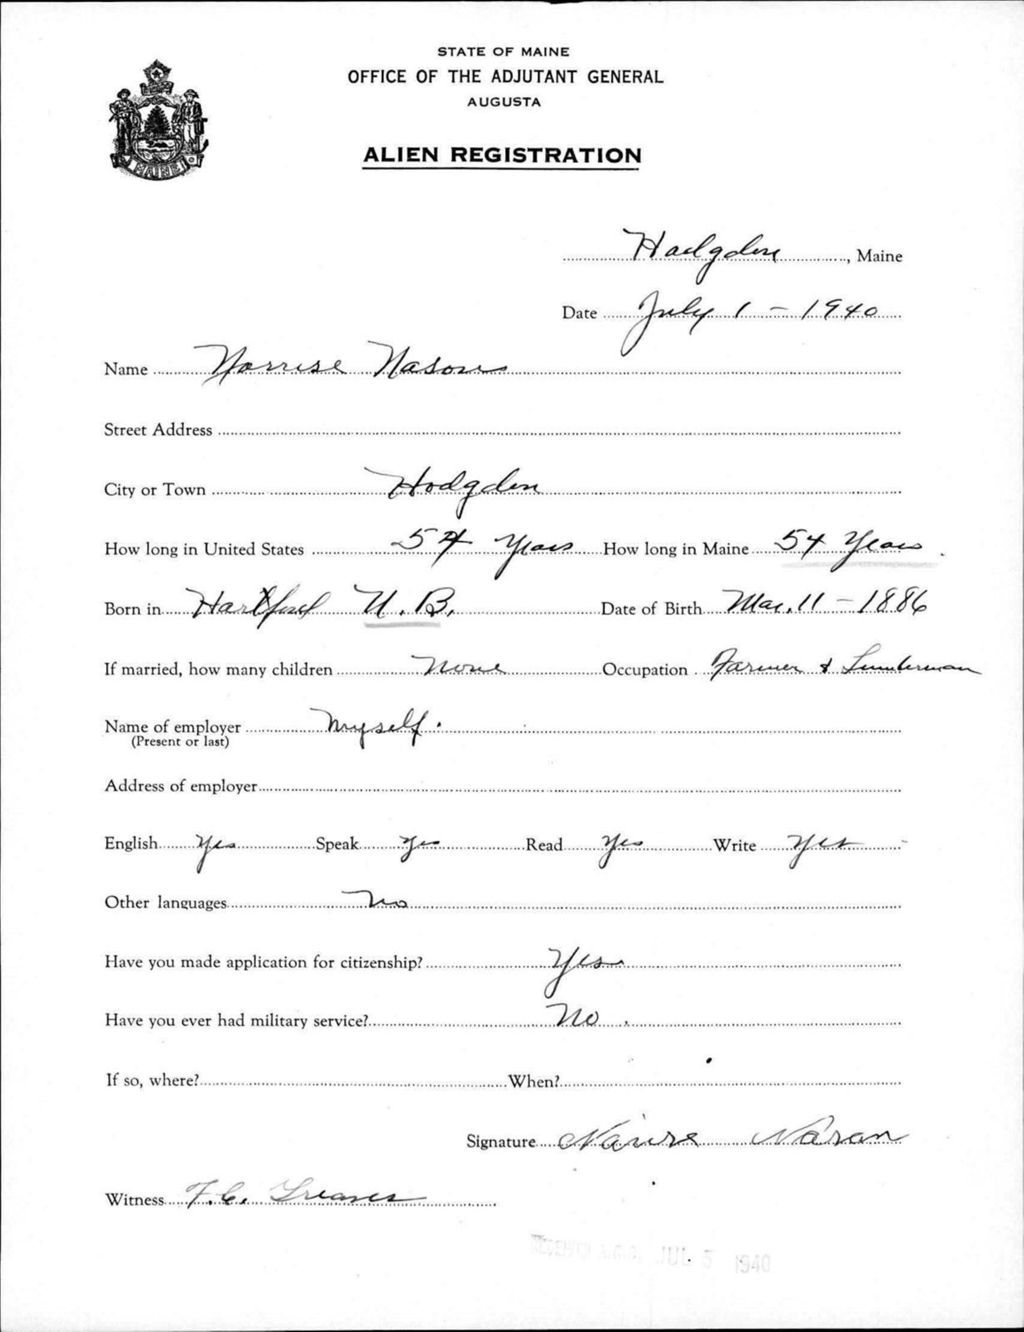 STATE OF MAINE
OFFICE OF THE ADJUTANT GENERAL
AUGUSTA
ALIEN REGISTRATION
MAINE
Hodgdon, Maine
Date July 1 - 1940
Name Norrise Nason
Street Address
City or Town Hodgdon
How long in United States 54 Years How long in Maine 54 Years
Born in Hartford N.B. Date of Birth Mar. 11 - 1886
If married, how many children None Occupation Farmer & Lumberman
Name of employer Myself.
(Present or last)
Address of employer
English Yes Speak Yes Read Yes Write Yes
Other languages No
Have you made application for citizenship? Yes
Have you ever had military service? No.
If so, where? When?
Signature Nason
Witness F. C. Greaves
RECEIVED A.G.O. JUL 5 1940